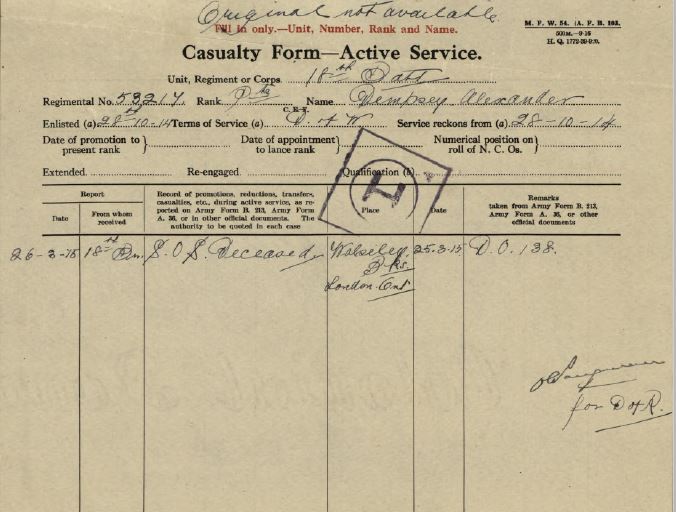 Original not available.
Fill in only.—Unit, Number, Rank and Name.
M. F. W. 54. (A. F. B. 103.
500M.—9-16
H. Q. 1772-39-920.
Casualty Form—Active Service.
Unit, Regiment or Corps 18th Batt
Regimental No. 53217 Rank Pte Name Dempsey Alexander
C. E. F.
Enlisted (a) 28-10-14 Terms of Service (a) D of W Service reckons from (a) 28-10-14
Date of promotion to present rank } Date of appointment to lance rank } Numerical position on roll of N. C. Os. }
Extended Re-engaged Qualification (b)
L
Report
Date
From whom received
Record of promotions, reductions, transfers, casualties, etc., during active service, as reported on Army Form B. 213, Army Form A. 36, or in other official documents. The authority to be quoted in each case
Place
Date
Remarks
taken from Army Form B. 213, Army Form A. 36, or other official documents
26-3-15 18th Bn. S.O.S. Deceased Wolseley 25.3.15 D.O. 138.
Bks.
London Ont
for D of R.